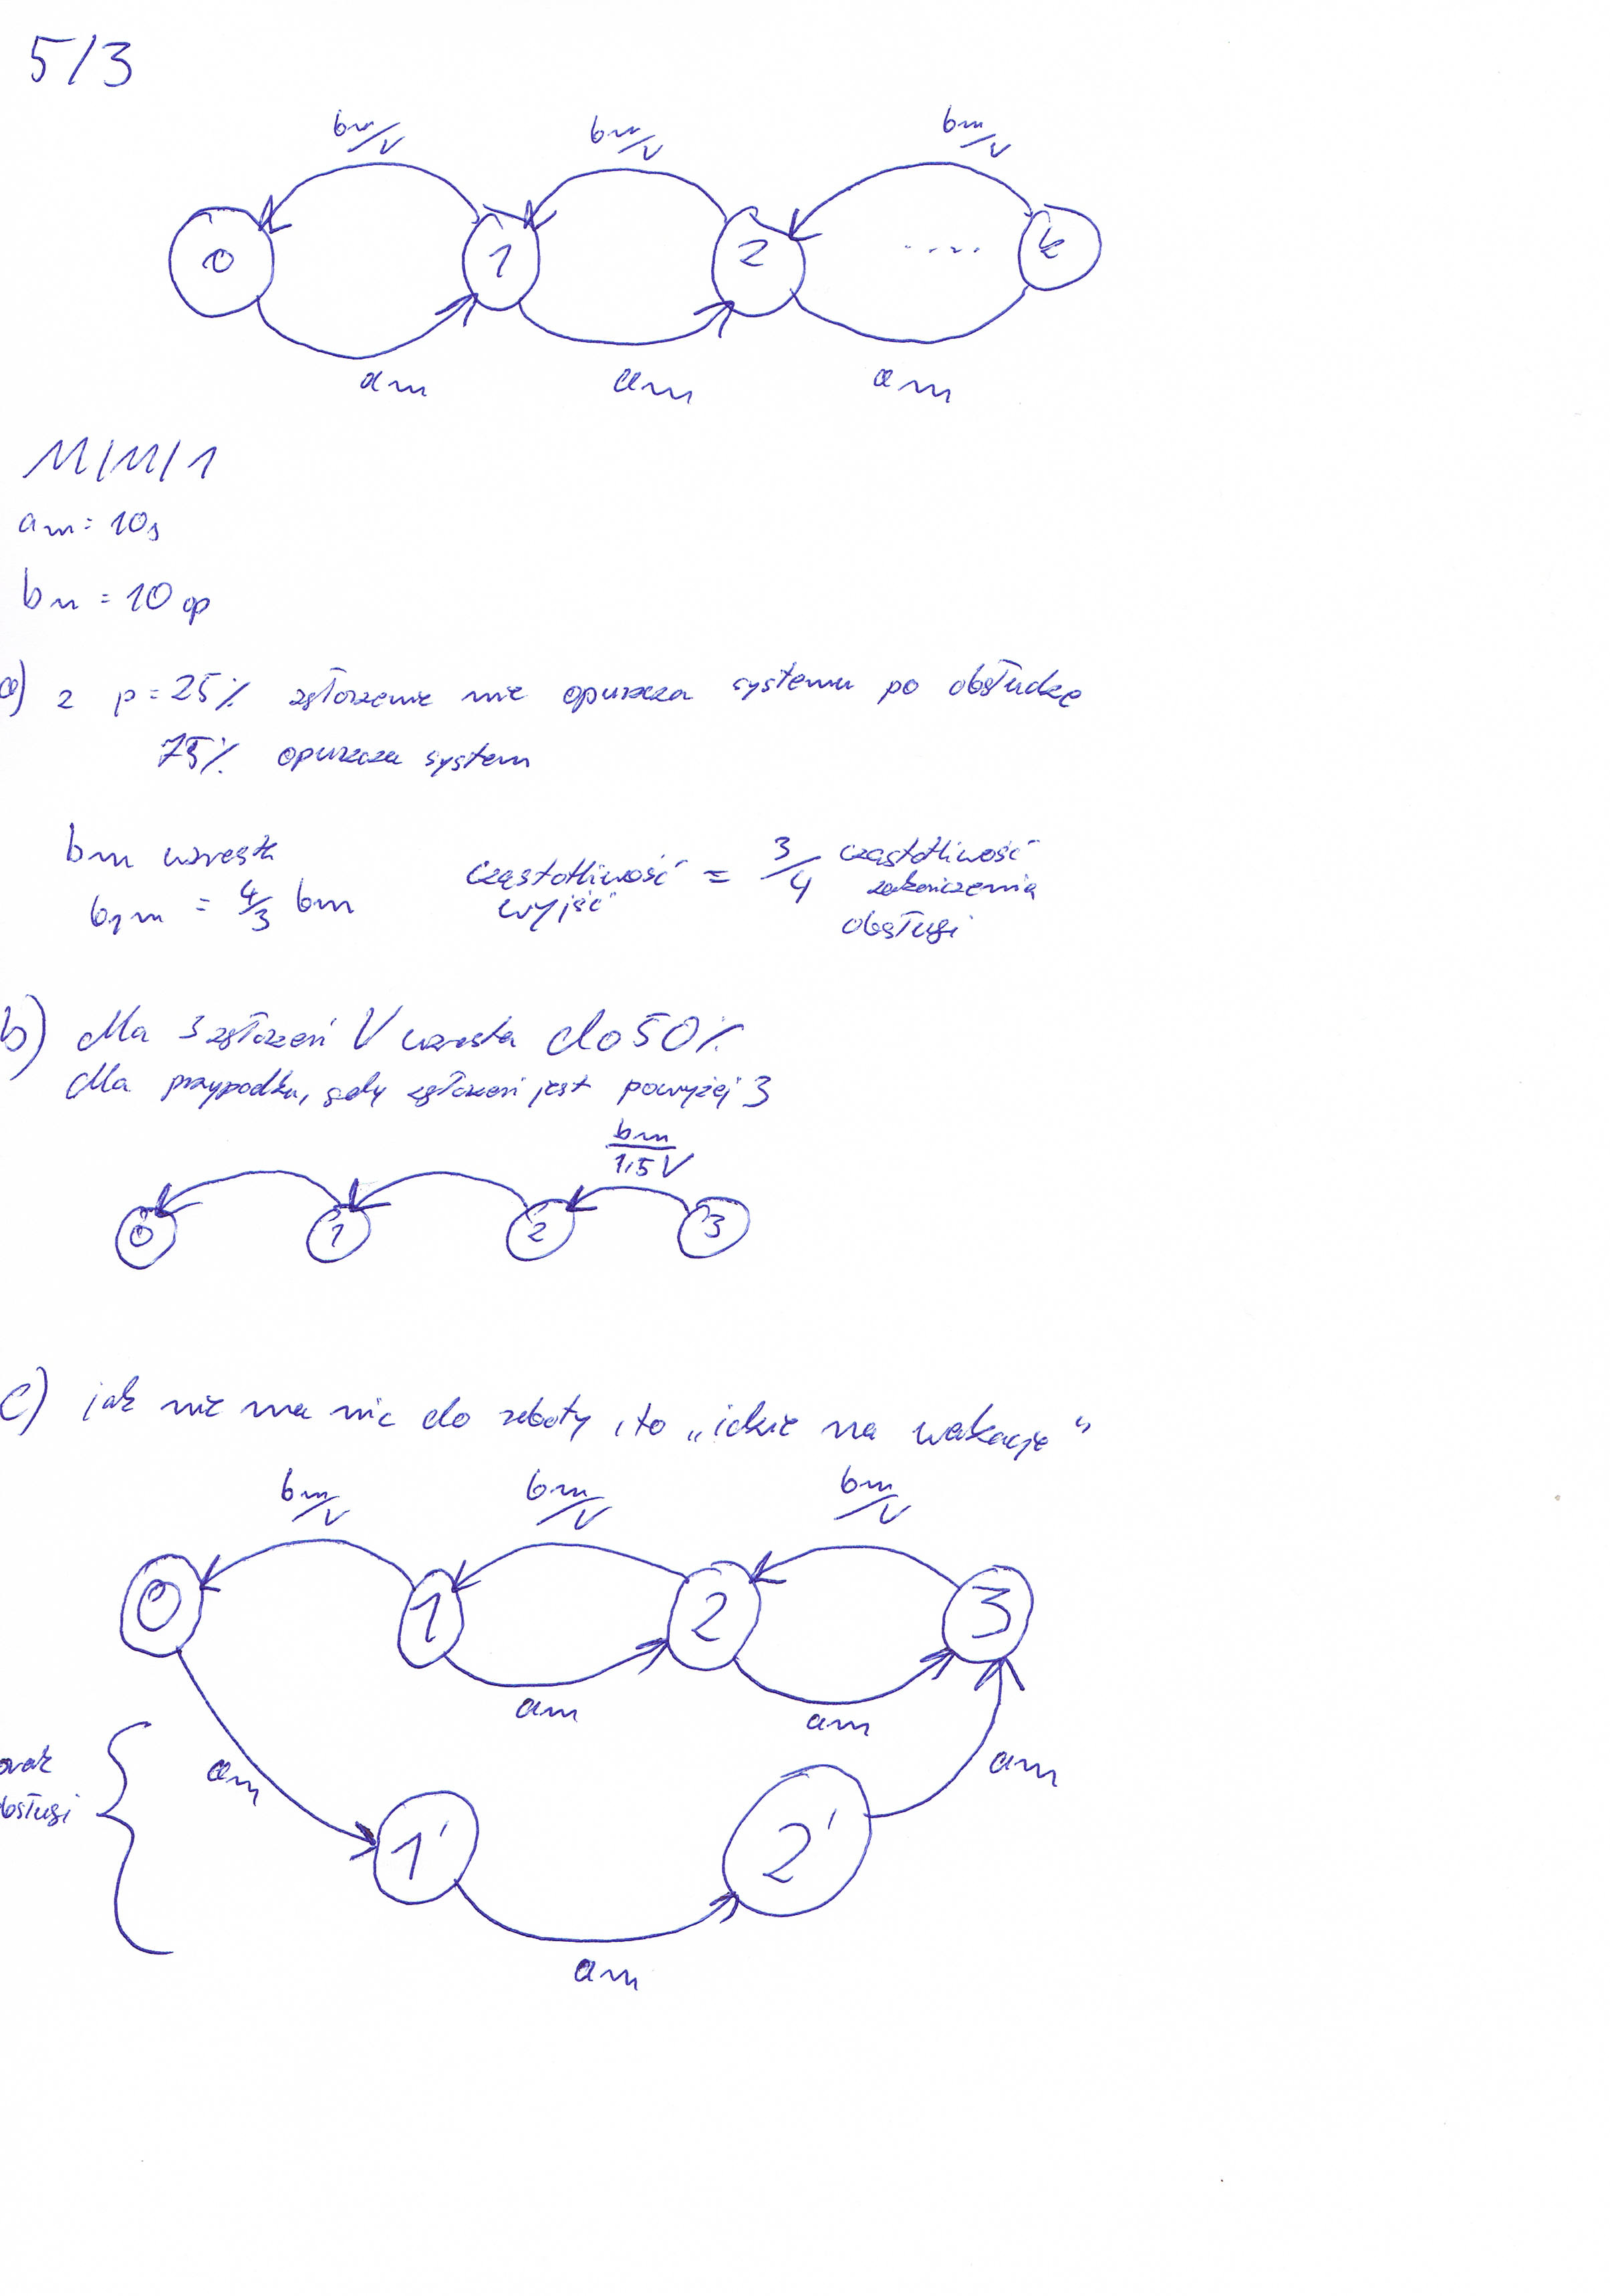 5/3
bm/V bm/V bm/V
0 1 2 .... k
am am am
M/M/1
am = 10s
bm = 10 op
a) z p = 25% zgłoszenie nie opuszcza systemu po obsłudze
75% opuszcza system
bm wzrasta częstotliwość = 3/4 częstotliwość
b1m = 4/3 bm wyjść zakończenia
obsługi
b) dla 3 zgłoszeń V wzrasta do 50%
dla przypadku, gdy zgłoszeń jest powyżej 3
bm/1,5V
0 1 2 3
c) jak nie ma nic do roboty, to „idzie na wakacje"
bm/V bm/V bm/V
0 1 2 3
am am
am am
obsługi
1' 2'
am